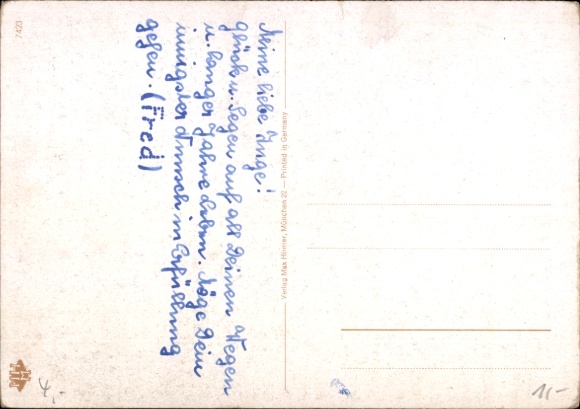 Meine liebe Inge!
Glück u. Segen auf all Deinen Wegen
u. langer Jahre Leben. Möge Dein
innigster Wunsch in Erfüllung
gehen. (Fred)
Verlag Max Hirmer, München 2 — Printed in Germany
7423
4,-
11,-